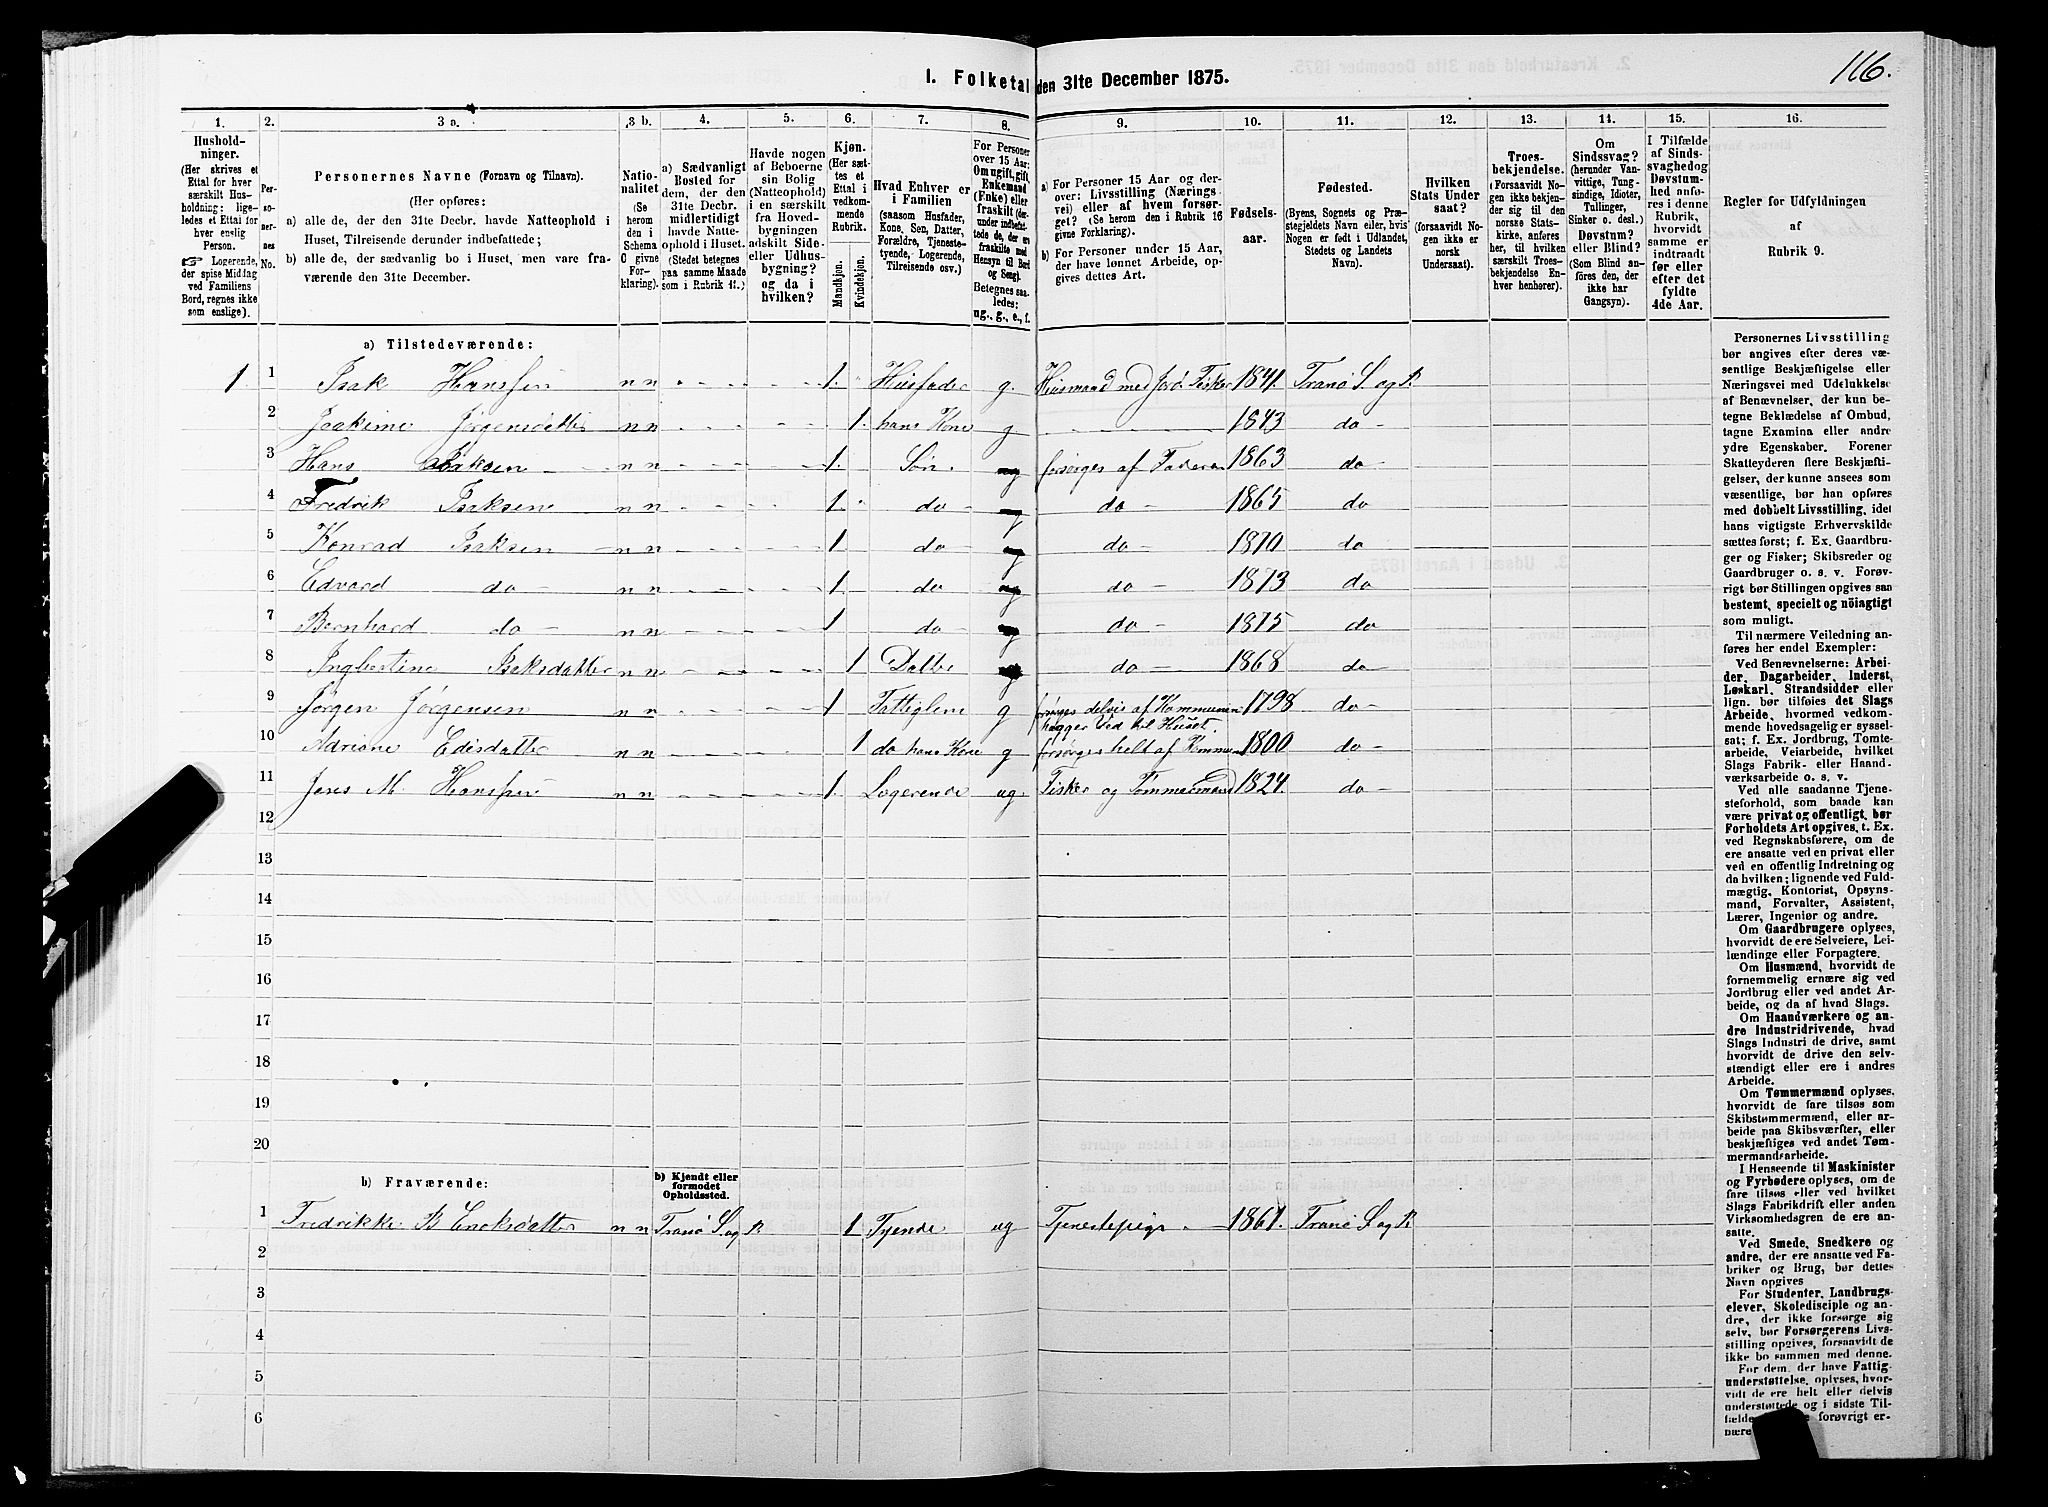 116.
I. Folketal den 31te December 1875.
1. 2. 3 a. 3 b. 4. 5. 6. 7. 8. 9. 10. 11. 12. 13. 14. 15. 16.
Hushold-
ninger.
(Her skrives et
Ettal for hver
særskilt Hus-
holdning; lige-
ledes et Ettal for
hver enslig
Person.
☞ Logerende,
der spise Middag
ved Familiens
Bord, regnes ikke
som enslige).
Per-
so-
ner-
nes
No.
Personernes Navne (Fornavn og Tilnavn).
(Her opføres:
a) alle de, der den 31te Decbr. havde Natteophold i
Huset, Tilreisende derunder indbefattede;
b) alle de, der sædvanlig bo i Huset, men vare fra-
værende den 31te December.
Natio-
nalitet
(Se
herom
den i
Schema
C givne
For-
klaring).
a) Sædvanligt
Bosted for
dem, der den
31te Decbr.
midlertidigt
havde Natte-
ophold i Huset.
(Stedet betegnes
paa samme Maade
som i Rubrik 11.)
Havde nogen
af Beboerne
sin Bolig
(Natteophold)
i en særskilt
fra Hoved-
bygningen
adskilt Side-
eller Udhus-
bygning?
og da i
hvilken?
Kjøn.
(Her sæt-
tes et
Ettal i
vedkom-
mende
Rubrik.
Mandkjøn.
Kvindekjøn.
Hvad Enhver er
i Familien
(saasom Husfader,
Kone, Søn, Datter,
Forældre, Tjeneste-
tyende, Logerende,
Tilreisende osv.)
For Personer
over 15 Aar:
Om ugift, gift,
Enkemand
(Enke) eller
fraskilt (der-
under indbefat-
tede de, der ere
fraskilte med
Hensyn til Bord
og Seng).
Betegnes saa-
ledes:
ug., g., e., f.
a) For Personer 15 Aar og der-
over: Livsstilling (Nærings-
vei) eller af hvem forsør-
get? (Se herom den i Rubrik 16
givne Forklaring).
b) For Personer under 15 Aar,
der have lønnet Arbeide, op-
gives dettes Art.
Fødsels-
aar.
Fødested.
(Byens, Sognets og Præ-
stegjeldets Navn eller, hvis
Nogen er født i Udlandet,
Stedets og Landets
Navn).
Hvilken
Stats Under
saat?
(forsaavidt No-
gen ikke er
norsk
Undersaat).
Troes-
bekjendelse.
(Forsaavidt No-
gen ikke bekjen-
der sig til den
norske Stats-
kirke, anføres
her, til hvilken
særskilt Troes-
bekjendelse En-
hver henhører).
Om
Sindssvag?
(herunder Van-
vittige, Tung-
sindige, Idioter,
Tullinger,
Sinker o. desl.)
Døvstum?
eller Blind?
(Som Blind an-
føres den, der
ikke har
Gangsyn).
I Tilfælde
af Sinds-
svaghed og
Døvstum-
hed anfø-
res i denne
Rubrik,
hvorvidt
samme er
indtraadt
før eller
efter det
fyldte
4de Aar.
Regler for Udfyldningen
af
Rubrik 9.
a) Tilstedeværende:
1 1 Isak Hanssen n n 1. Husfader g. Husmand med Jord. Fisker 1841. Tranø S og P
2 Joakime Jørgensdatter n n 1. hans Kone g 1843 do
3 Hans Isaksen n n 1. Søn. ug forsørges af Faderen 1863 do
4 Fredrik Isaksen n n 1 do ug do 1865 do
5 Konrad Isaksen n n 1 do ug do 1870 do
6 Edvard do n n 1 do ug do 1873 do
7 Bernhard do n n 1 do ug do 1875 do
8 Ingbertine Isaksdatter n n 1 Datter ug do 1868 do
9 Jørgen Jørgensen n n 1 Fattiglem g forsørges delvis af Kommunen hugger Ved til Huset. 1798 do
10 Adriane Edisdatter n n 1 do hans Kone g forsørges helt af Kommun 1800 do
11 Jens M. Hanssen n n 1. Logerende ug. Fisker og Tømmermand 1824. do
12
13
14
15
16
17
18
19
20
b) Fraværende:
b) Kjendt eller
formodet
Opholdssted.
1 Fredrikke B Enoksdatter n n Tranø S og P. 1 Tyende ug Tjenestepige 1861. Tranø S og P
2
3
4
5
6
Personernes Livsstilling
bør angives efter deres væ-
sentlige Beskjæftigelse eller
Næringsvei med Udelukkelse
af Benævnelser, der kun be-
tegne Beklædelse af Ombud,
tagne Examina eller andre
ydre Egenskaber. Forener
Skatteyderen flere Beskjæfti-
gelser, der kunne ansees som
væsentlige, bør han opføres
med dobbelt Livsstilling, idet
hans vigtigste Erhvervskilde
sættes først; f. Ex. Gaardbru-
ger og Fisker; Skibsreder og
Gaardbruger o. s. v. Forøv-
rigt bør Stillingen opgives saa
bestemt, specielt og nöiagtigt
som muligt.
Til nærmere Veiledning an-
føres her endel Exempler:
Ved Benævnelserne: Arbei-
der, Dagarbeider, Inderst,
Løskarl, Strandsidder eller
lign. bør tilføies det Slags
Arbeide, hvormed vedkom-
mende hovedsagelig er syssel-
sat; f. Ex. Jordbrug, Tomte-
arbeide, Veiarbeide, hvilket
Slags Fabrik- eller Haand-
værksarbeide o. s. v.
Ved alle saadanne Tjene-
steforhold, som baade kan
være privat og offentligt, bør
Forholdets Art opgives, t. Ex.
ved Regnskabsførere, om de
ere ansatte ved en privat eller
ved en offentlig Indretning og
da hvilken; lignende ved Fuld-
mægtig, Kontorist, Opsyns-
mand, Forvalter, Assistent,
Lærer, Ingeniør og andre.
Om Gaardbrugere oplyses,
hvorvidt de ere Selveiere, Lei-
lændinge eller Forpagtere.
Om Husmænd, hvorvidt de
fornemmelig ernære sig ved
Jordbrug eller ved andet Ar-
beide, og da af hvad Slags.
Om Haandværkere og an-
dre Industridrivende, hvad
Slags Industri de drive, samt
hvorvidt de drive den selv-
stændigt eller ere i andres
Arbeide.
Om Tømmermænd oplyses,
hvorvidt de fare tilsøs som
Skibstømmermænd, eller ar-
beide paa Skibsværfter, eller
beskjæftiges ved andet Tøm-
mermandsarbeide.
I Henseende til Maskinister
og Fyrbødere oplyses, om de
fare tilsøs eller ved hvilket
Slags Fabrikdrift eller anden
Virksomhedsgren de ere an-
satte.
Ved Smede, Snedkere og
andre, der ere ansatte ved Fa-
briker og Brug, bør dettes
Navn opgives
For Studenter, Landbrugs-
elever, Skoledisciple og an-
dre, der ikke forsørge sig
selv, bør Forsørgerens Livs-
stilling opgives, forsaavidt de
ikke bo sammen med denne.
For dem, der have Fattig-
understøttelse, oplyses, hvor-
vidt de ere helt eller delvis
understøttede og i sidste Til-
fælde forøvrigt er-
nære